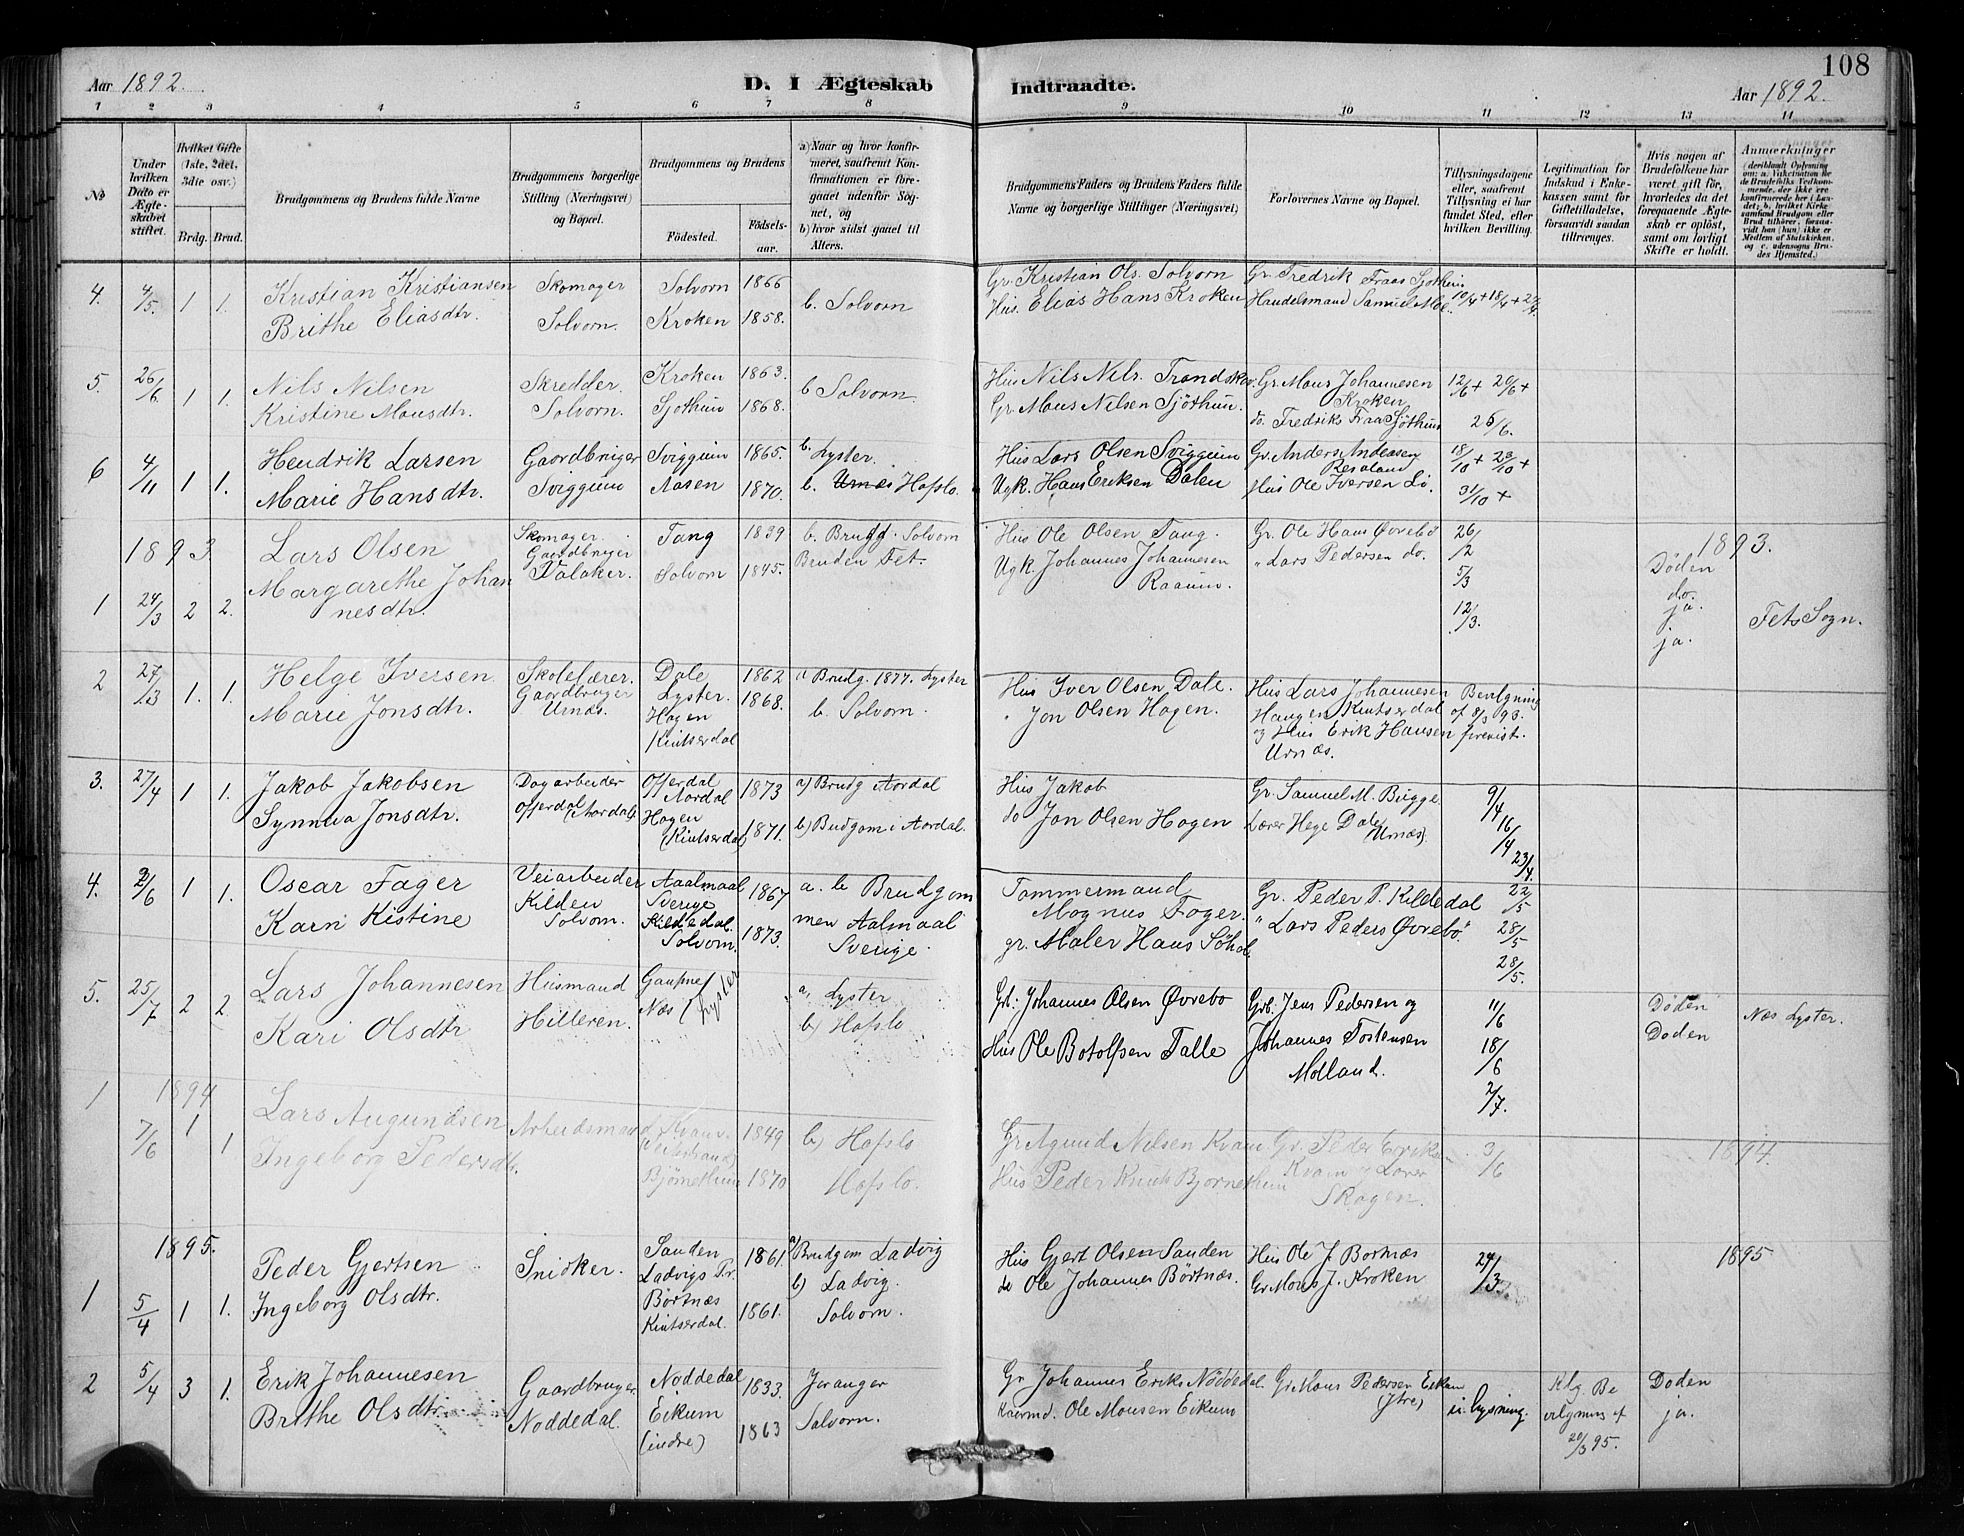 108
Aar 1892. D. I Ægteskab Indtraadte. Aar 1892.
1 2 3 4 5 6 7 8 9 10 11 12 13 14
№
Under hvilken Dato er Ægteskabet stiftet.
Hvilket Gifte (1ste, 2det, 3die osv.)
Brdg. Brud.
Brudgommens og Brudens fulde Navne
Brudgommens borgerlige Stilling (Næringsvei) og Bopæl.
Brudgommens og Brudens
Fødested. Fødselsaar.
a) Naar og hvor konfirmeret, saafremt Konfirmationen er foregaaet udenfor Sognet, og
b) hvor sidst gaaet til Alters.
Brudgommens Faders og Brudens Faders fulde Navne og borgerlige Stillinger (Næringsvei)
Forlovernes Navne og Bopæl.
Tillysningsdagene eller, saafremt Tillysning ei har fundet Sted, efter hvilken Bevilling.
Legitimation for Indskud i Enkekassen samt for Giftetilladelse, forsaavidt saadan tiltrænges.
Hvis nogen af Brudefolkene har været gift før, hvorledes da det foregaaende Ægteskab er opløst, samt om lovligt Skifte er holdt.
Anmærkninger (deriblandt Oplysning om: a. Vakcination for de Brudefolks Vedkommende, der ikke ere konfirmerede her i Landet; b. hvilket Kirkesamfund Brudgom eller Brud tilhører, forsaavidt han (hun) ikke er Medlem af Statskirken, og c. udensogns Brudes Hjemsted.)
4. 4/5. 1 1. Kristian Kristiansen Skomager Solvorn 1866 b. Solvorn Gr. Kristian Ols. Solvorn Gr. Fredrik Fraas Sjøthun
Brithe Eliasdtr. Solvorn. Kroken 1858. Hus. Elias Hans Kroken Handelsmand Samuel Moe. 10/4 + 18/4 + 24/4
5. 26/6 1 1. Nils Nilsen Skredder. Kroken 1863. b Solvorn. Hus Nils Nils. Gr. Mons Johannesen Kroken 12/6 + 20/6 +
Kristine Monsdtr. Solvorn. Sjøthun 1868. Gr. Mons Nilsen Sjøthun. do. Fredriks Fraas Sjøthun 26/6.
6 4/11 1 1. Hendrik Larsen Gaardbruger Sviggum 1865. b. Lyster. Hus Lars Olsen Sviggum Gr. Anders Andeasen 18/10 + 23/10 +
Marie Hansdtr. Sviggum Aasen 1870. b. Urnæs Hafslo. Ugk. Hans Eriksen Dalen Hus Ole Iversen Li. 31/10 +
1893 1893.
1 24/3 2 2. Lars Olsen Skomager. Gaardbruger Tang 1839 b. Brudg. Solvorn Hus Ole Olsen Tang. Gr. Ole Hans Øvrebø 26/2 Døden
Margarethe Johannesdtr. Valaker. Solvorn 1845. Bruden Fet. Ugk. Johannes Johannesen Raaum. " Lars Pedersen do. 5/3 12/3. do. ja. ja. Fets Sogn.
2 27/3 1. 1. Helge Iversen Skolelærer. Dale Lyster. 1862 a Brudg. 1877. Lyster Hus Iver Olsen Dale. Hus Lars Johannesen Haugen Kintserdal
Marie Jonsdtr. Gaardbruger Urnæs. Hagen Kintserdal 1868. b. Solvorn. " Jon Olsen Hagen. og Hus Erik Hansen Urnæs. Bevilgning af 8/3 93. forevist.
3. 27/4 1 1. Jakob Jakobsen Dagarbeider Offerdal Aardal 1873 a) Brudg Aardal Hus Jakob Gr. Samuel M. Bugge 9/4
Synneva Jonsdtr. Offerdal, Aardal. Hagen (Kintserdal) 1871. b) Budgom i Aardal. do Jon Olsen Hagen Lærer Hege Dale (Urnæs). 16/4 23/4.
4. 2/6 1 1. Oscar Fager Veiarbeider Aalmaal Sverige 1867 a. b Brudgommen Aalmaal Sverige. Tømmermand Magnus Fager. Gr. Peder P. Kildedal 22/5
Karn Kistine Kilden Solvorn. Kildedal Solvorn. 1873. gr. Maler Hans " Lars Peders Øvrebø. 28/5 28/5.
5. 25/7 2 2. Lars Johannesen Husmand Gaupne a, Lyster Grb: Johannes Olsen Øvrebø Grb. Jens Pedersen og 11/6 Døden Næs Lyster.
Kari Olsdtr Hilleren. Næs (Lyster b) Hafslo Hus Ole Botolfsen Talle Johannes Tostensen Molland. 18/6 2/7. Doden
1894 1894.
1 7/6 1 1 Lars Augundsen Arbeidsmand Kvam 1849 b) Hafslo Gr Agund Nilsen Kvam Gr. Peder Eriksen Kvam 3/6
Ingeborg Pedersdtr. Bjørnethun 1870 Hafslo. Hus Peder Knuts Bjørnethun Lærer Skagen.
1895. 1895
1 5/4 1 1. Peder Gjertsen Snidker. Sanden Ladvigs Pr. 1861. a) Brudgom Ladvig Hus Gjert Olsen Sanden Hus Ole J. Bortnæs 24/3.
Ingeborg Olsdtr. Børtnæs Kintserdal. 1861. b) Ladvig. Solvorn. do Ole Johannes Børtnæs. Gr Mons J. Kroken
2 5/4 3 1. Erik Johannesen Gaardbruger Noddedal 1833. Joranger Gr Johannes Eriks Nøddedal. Gr Mons Pedersen Eikum (Ytre) u. lysning. Klg. Bevilgning af 20/3 95. Doden ja.
Brithe Olsdtr. Noddedal. Eikum (indre) 1863 Solvorn. Kaarmd. Ole Monsen Eikum